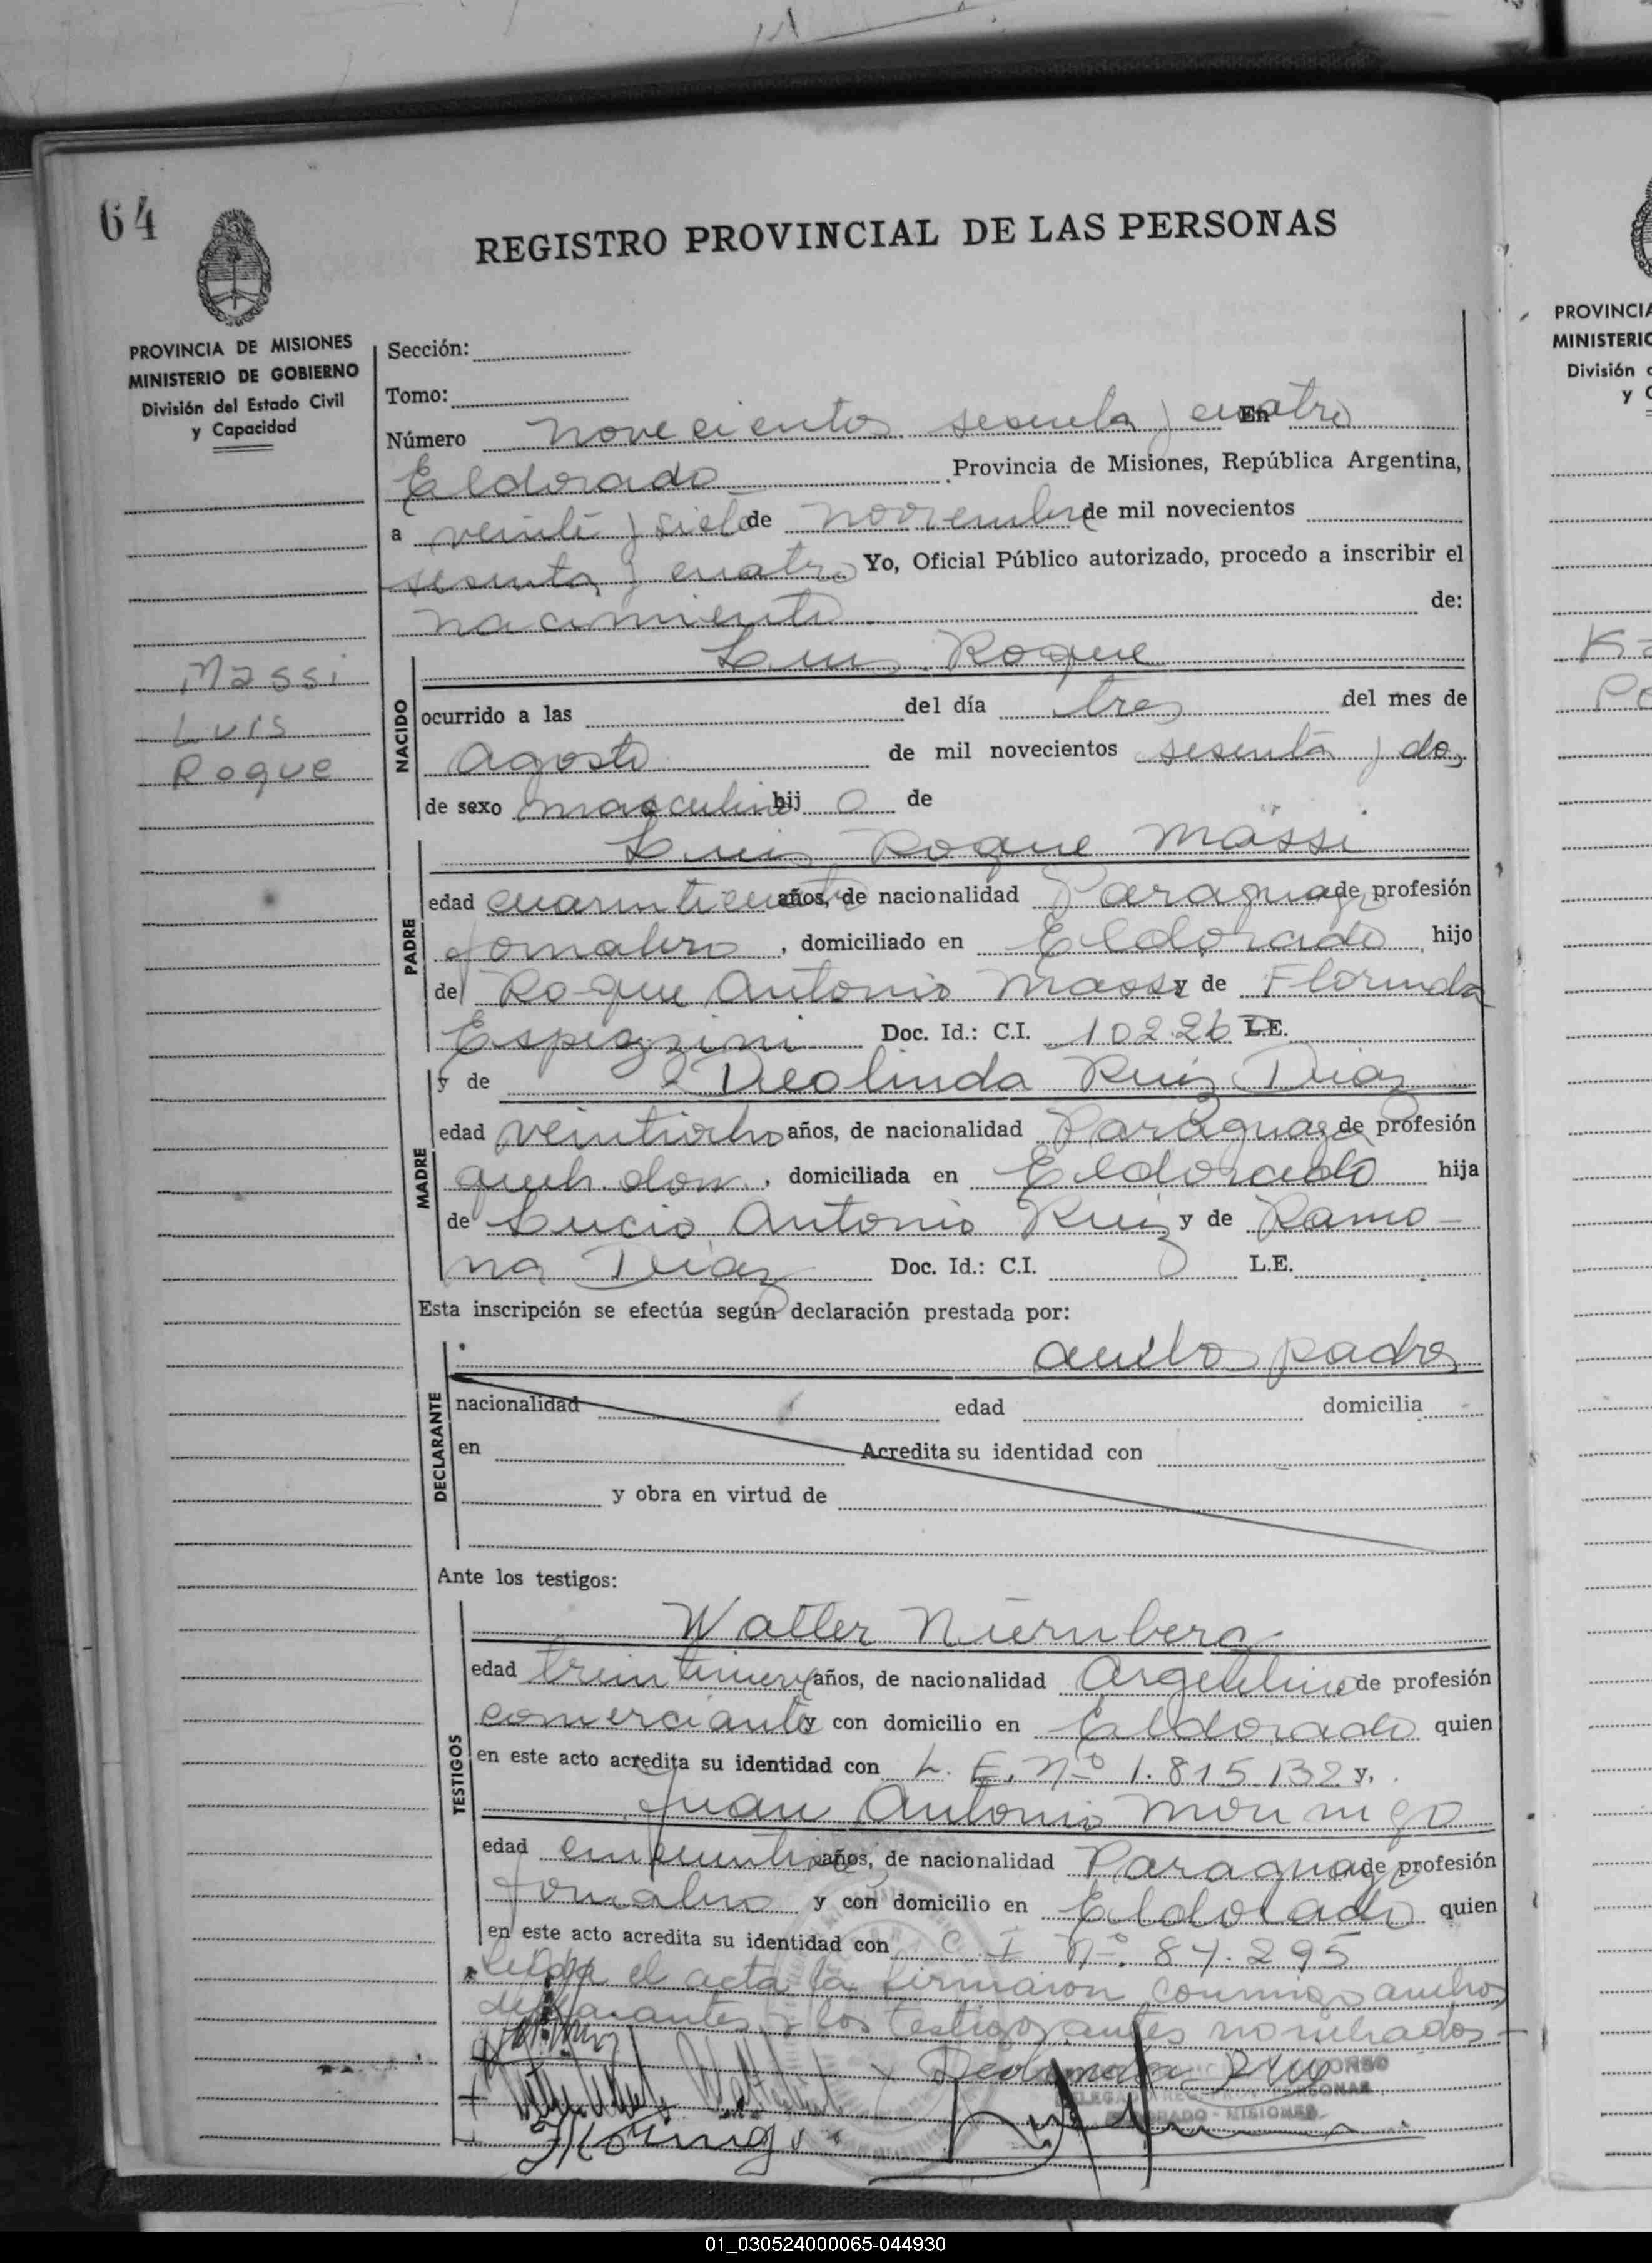 64
REGISTRO PROVINCIAL DE LAS PERSONAS
PROVINCIA DE MISIONES
MINISTERIO DE GOBIERNO
División del Estado Civil
y Capacidad
Massi
Luis
Roque
Sección:
Tomo:
Número novecientos sesenta y cuatro En
Eldorado Provincia de Misiones, República Argentina,
a veinte y siete de noviembre de mil novecientos
sesenta y cuatro Yo, Oficial Público autorizado, procedo a inscribir el
nacimiento de:
NACIDO
Luis Roque
ocurrido a las del día tres del mes de
Agosto de mil novecientos sesenta y dos
de sexo masculino hij o de
PADRE
Luis Roque Massi
edad años, de nacionalidad Paraguayo de profesión
Jornalero, domiciliado en Eldorado hijo
de Roque Antonio Massi y de Florinda
Espezzini Doc. Id.: C.I. 10226 L.E.
MADRE
y de Deolinda Ruiz Diaz
edad veintiocho años, de nacionalidad Paraguaya de profesión
queh. dom., domiciliada en Eldorado hija
de Lucio Antonio Ruiz y de Ramo-
na Diaz Doc. Id.: C.I. L.E.
Esta inscripción se efectúa según declaración prestada por:
DECLARANTE
ambos padres
nacionalidad edad domicilia
en Acredita su identidad con
y obra en virtud de
Ante los testigos:
TESTIGOS
Walter Nürnberg
edad años, de nacionalidad Argentino de profesión
comerciante y con domicilio en Eldorado quien
en este acto acredita su identidad con L. E. Nº 1.815.132 y,
Juan Antonio
edad años, de nacionalidad Paraguayo de profesión
Jornalero y con domicilio en Eldorado quien
en este acto acredita su identidad con C. I Nº. 87.295
Leida el acta la firmaron conmigo ambos
declarantes y los testigos antes nombrados.-
Deolinda Ruiz
ELDORADO - MISIONES
PROVINCIA
MINISTERIO
División
y
01_030524000065-044930